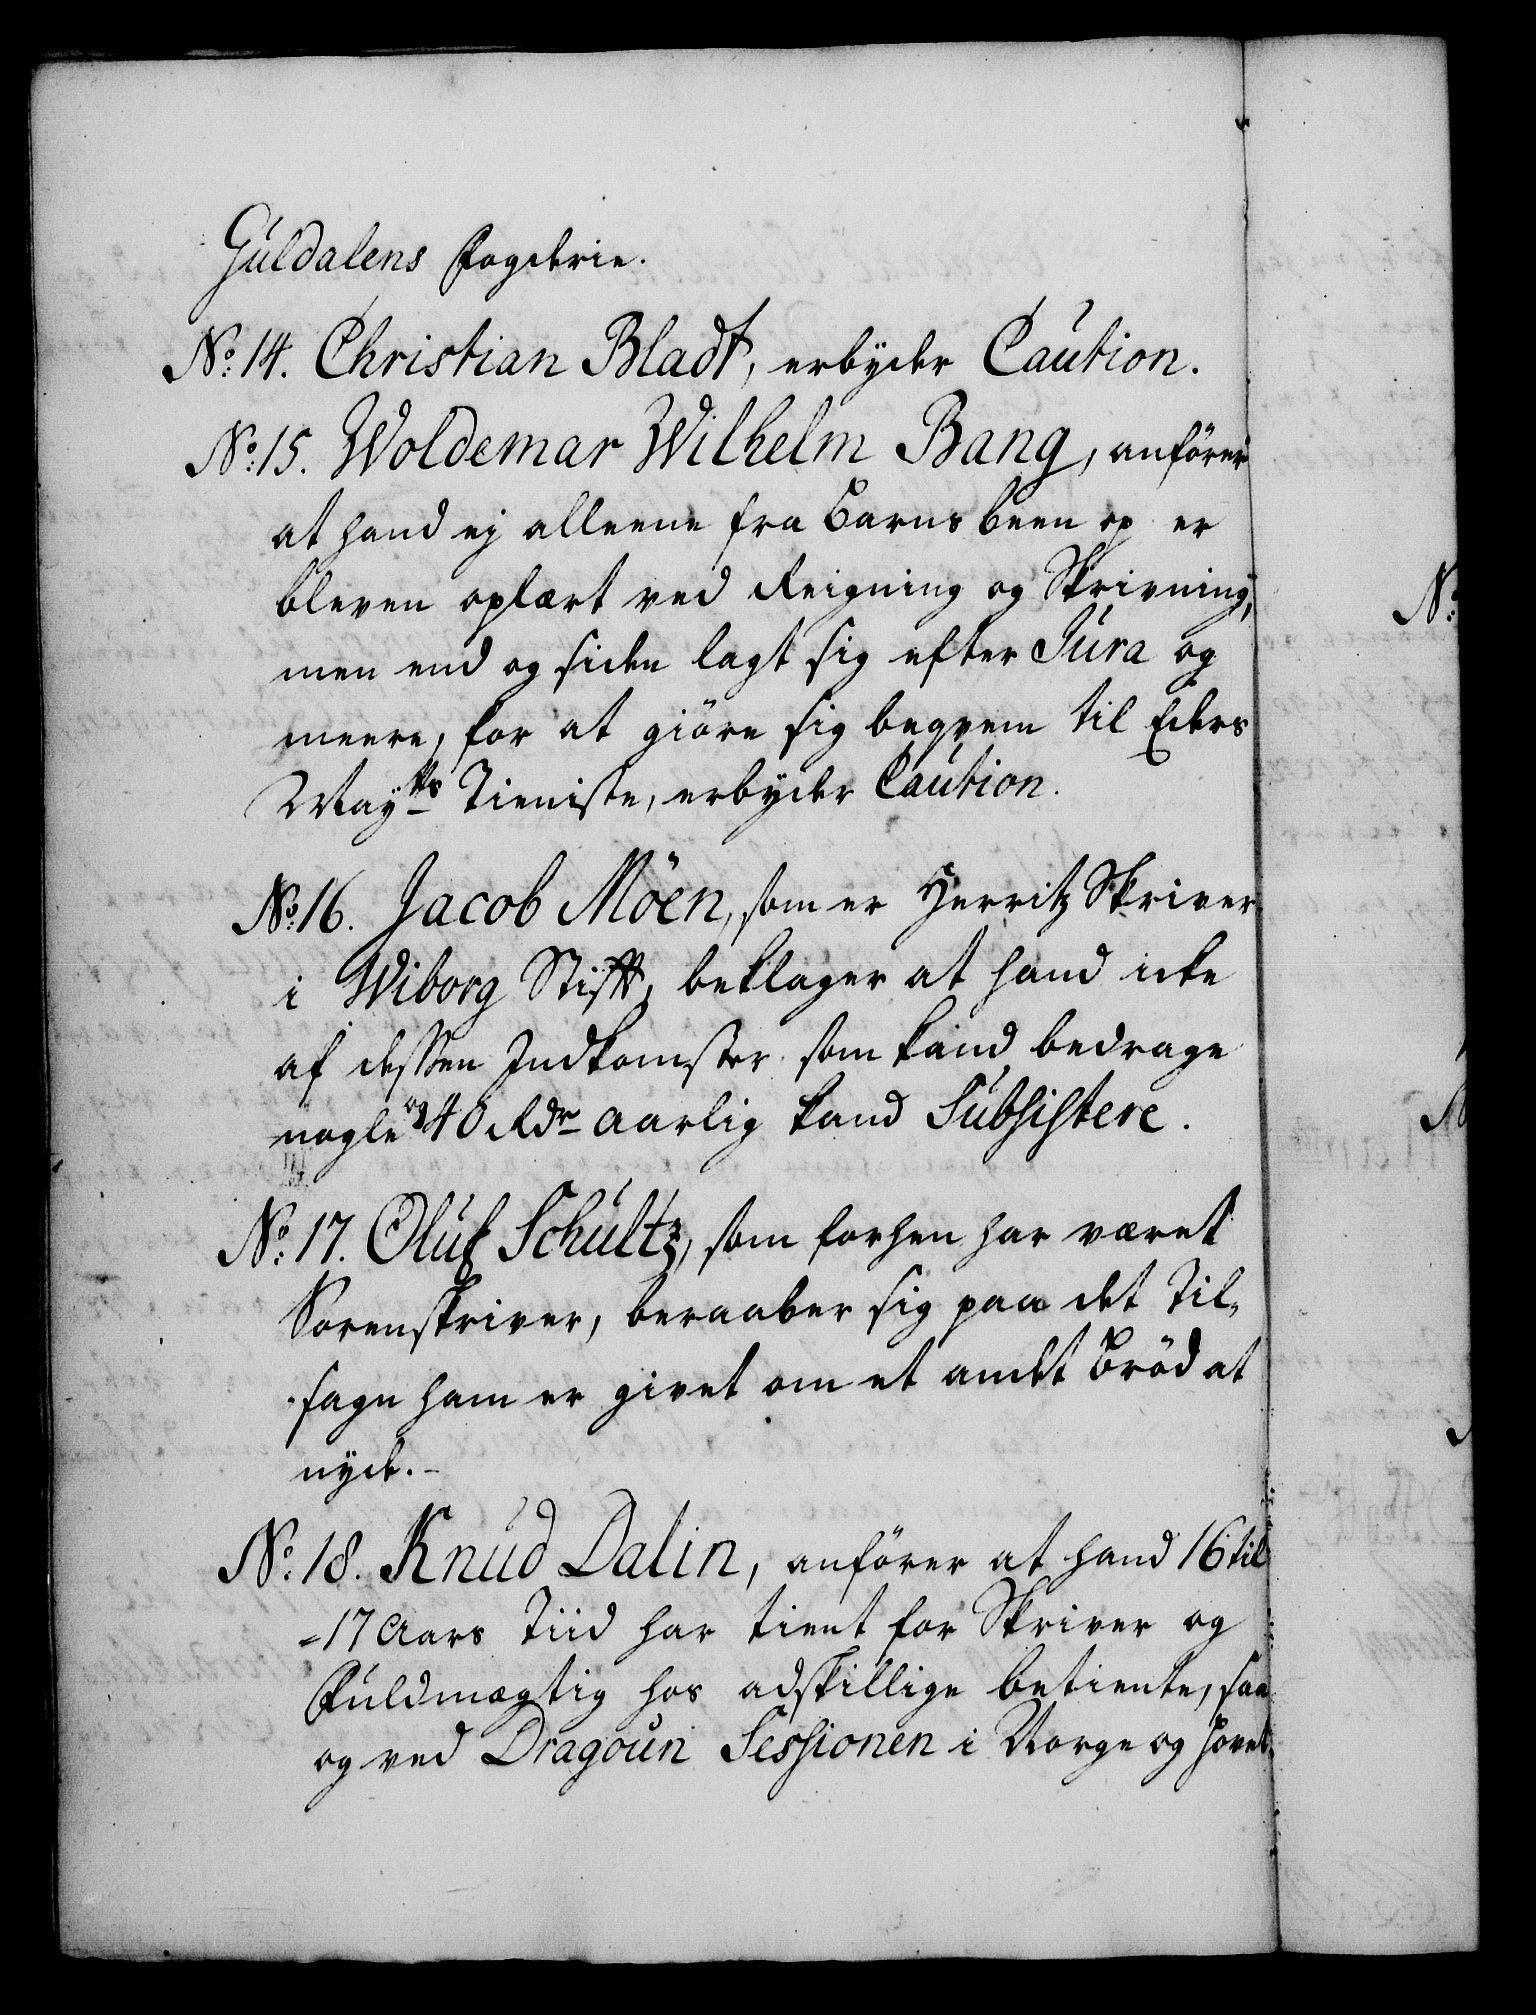 Guldalens Fogderie.
No: 14. Christian Bladt, erbyder Caution.
No: 15. Woldemar Wilhelm Bang, anförer
at hand ej alleene fra Barns been op er
bleven oplært ved Reigning og Skrivning,
men end og siden lagt sig efter Jura og
meere, for at giöre sig beqvem til Eders
Mayts Tieniste, erbyder Caution.
No: 16. Jacob Möen, som er Herritz Skriver
i Wiborg Stift, beklager at hand icke
af dessen Indkomster som kand bedrage
nogle og 40 Rdr aarlig kand Subsistere.
No: 17. Oluf Schultz, som forhen har været
Sorenskriver, beraaber sig paa det Til-
sagn ham er givet om et andet Bröd at
nyde.-
No: 18. Knud Dalin, anförer at hand 16 til
17 Aars Tiid har tient for Skriver og
Fuldmægtig hos adskillige betiente, saa
og ved Dragoun Sessionen i Norge og hoved
No: